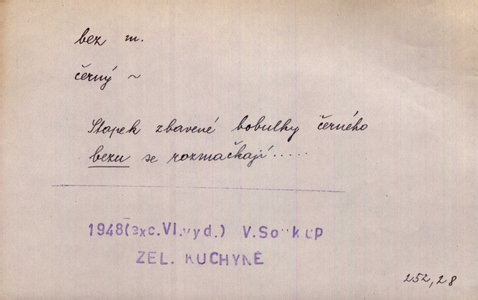 bez m.
černý ~
Stopek zbavené bobulky černého
bezu se rozmačkají.....
1948 (exc. VI. vyd.) V. Soukup
ZEL. KUCHYNĚ
252,28